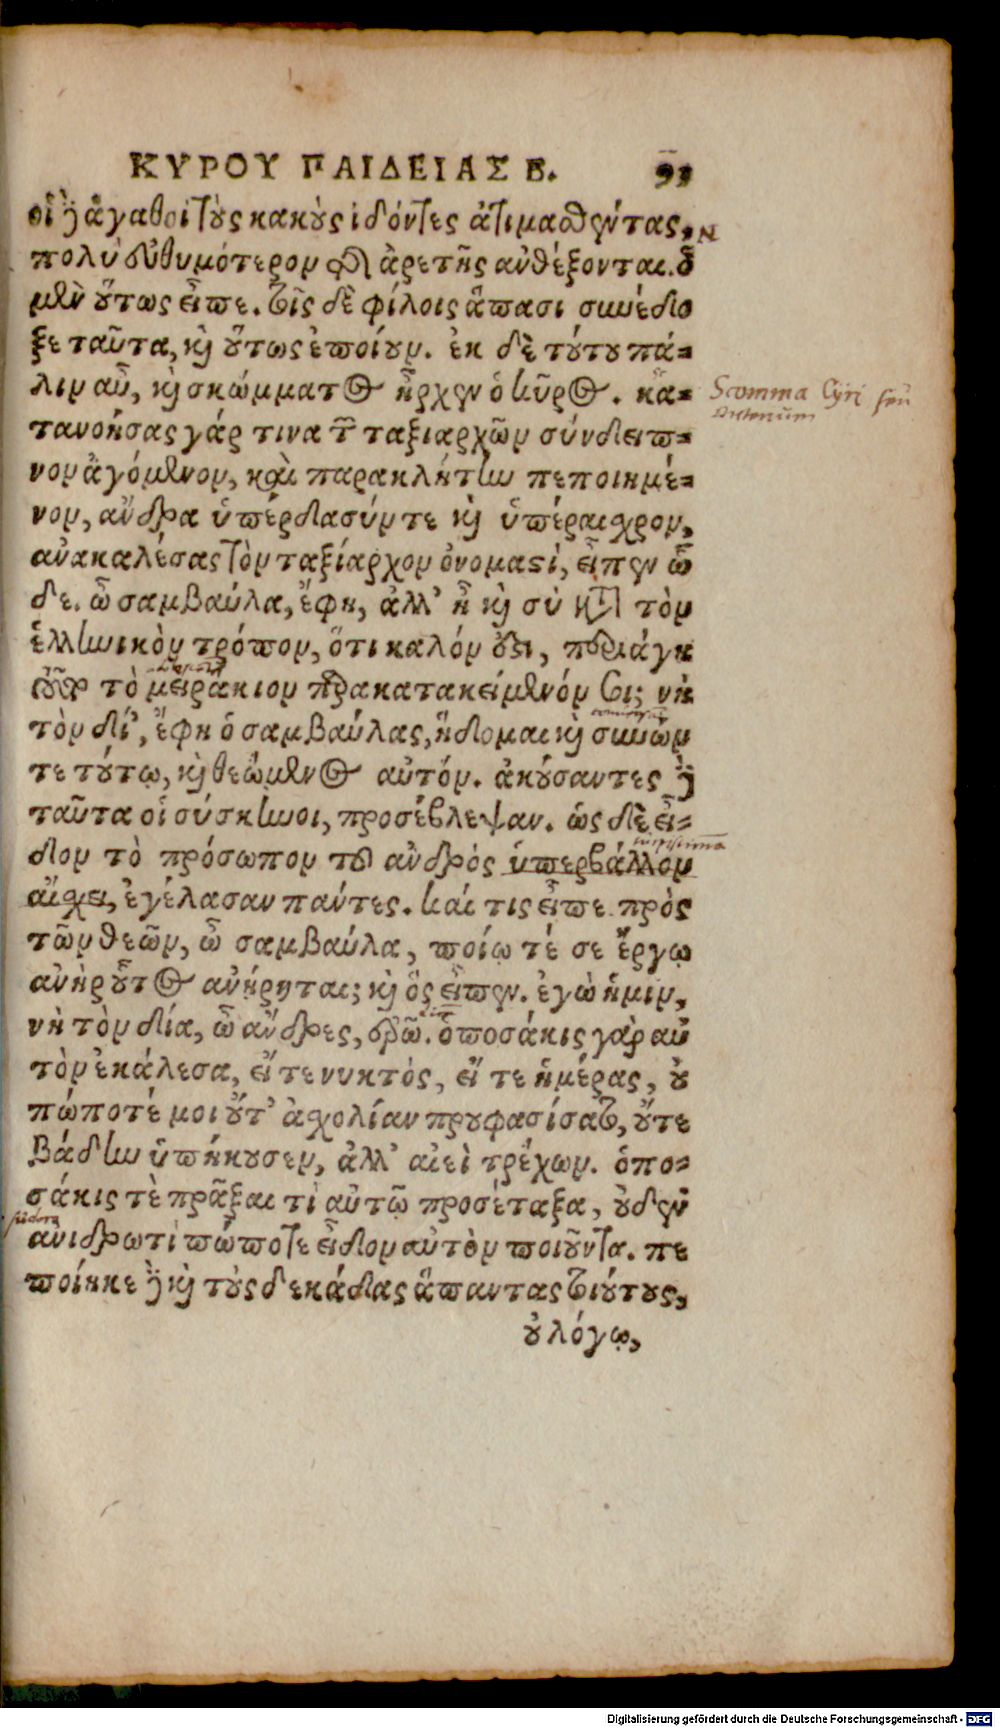 ΚΥΡΟΥ ΠΑΙΔΕΙΑΣ Β. 93
οἱ δ᾽ ἀγαθοὶ τοὺς κακοὺς ἰδόντες ἀτιμασθέντας,
πολὺ εὐθυμότερον τῆς ἀρετῆς ἀνθέξονται. ὁ
μὲν οὕτως εἶπε. τοῖς δὲ φίλοις ἅπασι συνέδο
ξε ταῦτα, καὶ οὕτως ἐποίουν. ἐκ δὲ τούτου πά-
λιν αὖ, καὶ σκώμματος ἦρχεν ὁ κῦρος. κα-
τανοήσας γάρ τινα τῶν ταξιαρχῶν σύνδειπ-
νον ἀγόμενον, καὶ παρακλήτην πεποιημέ-
νον, ἄνδρα ὑπέρδασύν τε καὶ ὑπέραισχρον,
ἀνακαλέσας τὸν ταξίαρχον ὀνομαστὶ, εἶπεν ὧ
δε. ὦ σαμβαύλα, ἔφη, ἀλλ᾽ ἦ καὶ σὺ κατὰ τὸν
ἑλληνικὸν τρόπον, ὅτι καλόν ἐστι, περιάγῃ
τοῦτο τὸ μειράκιον παρακατακείμενόν σοι; νὴ
τὸν δί᾽, ἔφη ὁ σαμβαύλας, ἥδομαι καὶ συνών
τε τούτῳ, καὶ θεώμενος αὐτόν. ἀκούσαντες δ᾽
ταῦτα οἱ σύσκηνοι, προσέβλεψαν. ὡς δὲ εἶ-
δον τὸ πρόσωπον τοῦ ἀνδρὸς ὑπερβάλλον
αἴσχει, ἐγέλασαν πάντες. καί τις εἶπε πρὸς
τῶν θεῶν, ὦ σαμβαύλα, ποίῳ τέ σε ἔργῳ
ἀνὴρ οὗτος ἀνήρηται; καὶ ὃς εἶπεν. ἐγὼ ἡμῖν,
νὴ τὸν δία, ὦ ἄνδρες, ἐρῶ. ὁποσάκις γὰρ αὐ
τὸν ἐκάλεσα, εἴ τε νυκτός, εἴ τε ἡμέρας, οὐ
πώποτέ μοι οὔτ᾽ ἀσχολίαν προυφασίσατο, οὔτε
βάδην ὑπήκουσεν, ἀλλ᾽ αἰεὶ τρέχων. ὁπο-
σάκις τὲ πρᾶξαι τὶ αὐτῷ προσέταξα, οὐδὲν
ἀνιδρωτὶ πώποτε εἶδον αὐτὸν ποιοῦντα. πε
ποίηκε δ᾽ καὶ τοὺς δεκάδας ἅπαντας τοιούτους,
οὐ λόγῳ,
Scomma Cyri seu
sudore